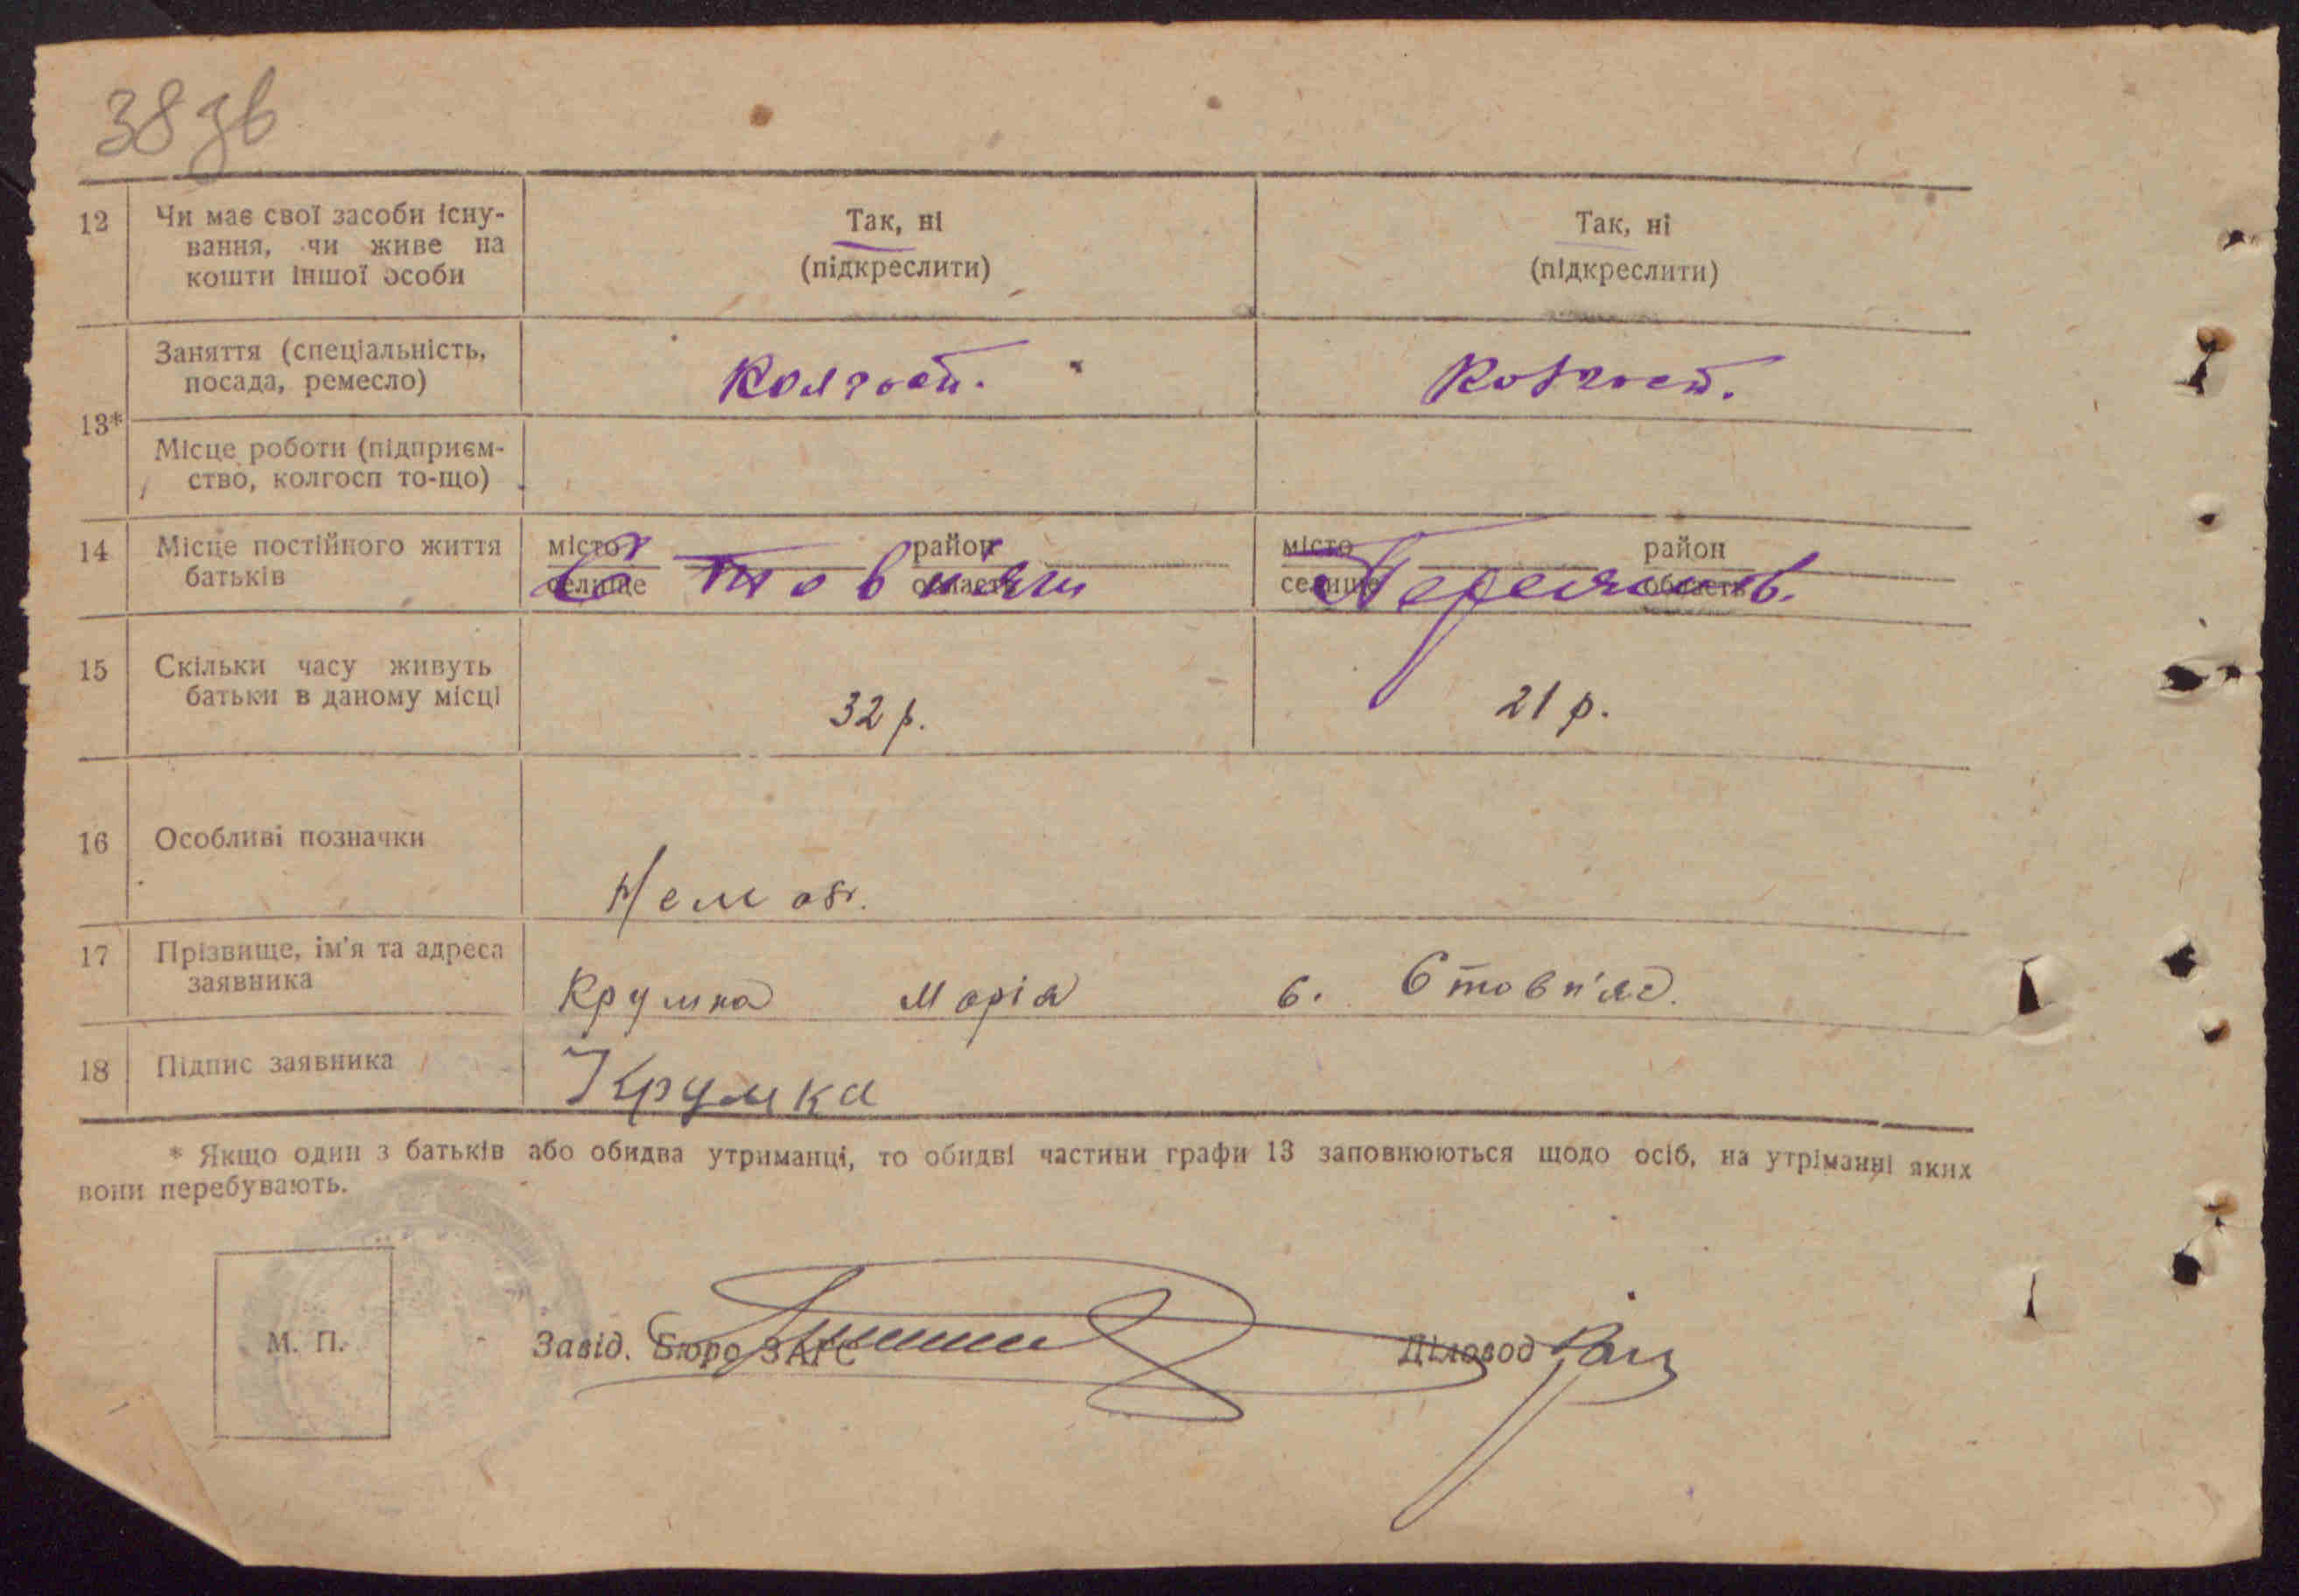 38 зв
12 Чи має свої засоби існу- Так, ні Так, ні
вання, чи живе на (підкреслити) (підкреслити)
кошти іншої особи
13* Заняття (спеціальність, Колгосп. Колгосп.
посада, ремесло)
Місце роботи (підприєм-
ство, колгосп то-що)
14 Місце постійного життя місто район місто район
батьків селище область селище область
15 Скільки часу живуть
батьки в даному місці 32 р. 21 р.
16 Особливі позначки
Нем
17 Прізвище, ім'я та адреса
заявника Марія с. Стовп'яг.
18 Підпис заявника
* Якщо один з батьків або обидва утриманці, то обидві частини графи 13 заповнюються щодо осіб, на утріманні яких
вони перебувають.
М. П. Завід. Бюро ЗАГС Діловод